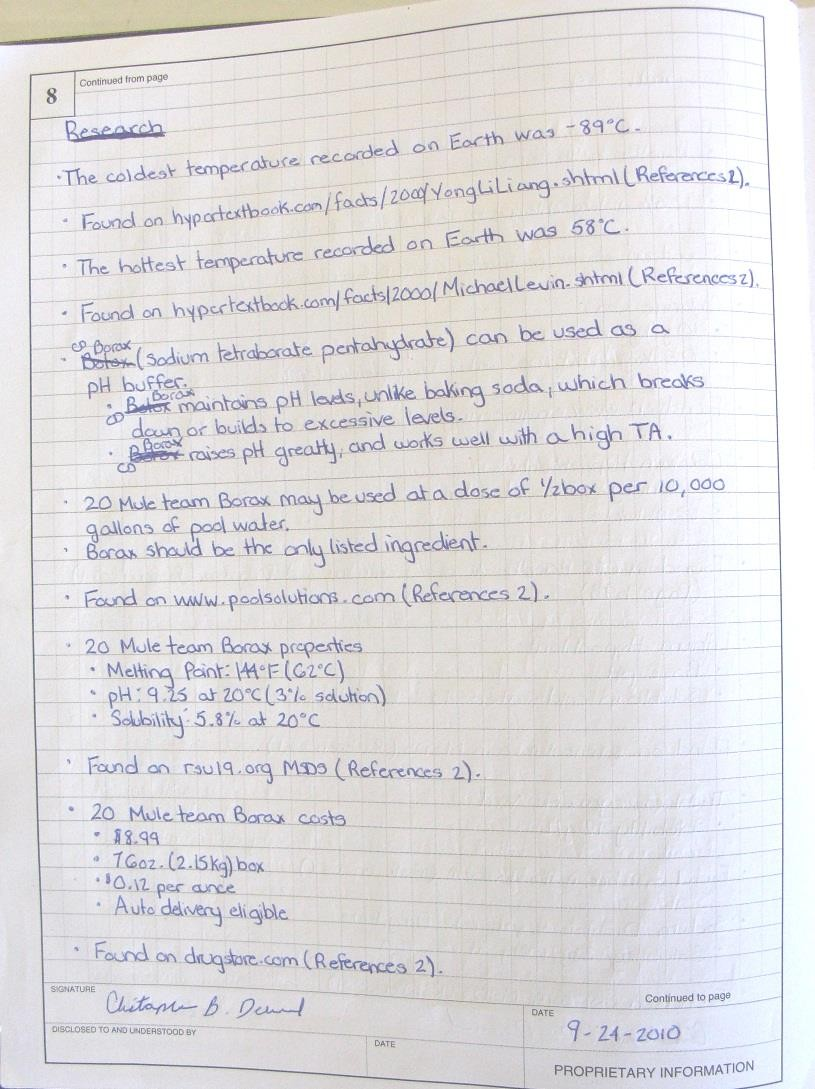 8
Continued from page
Research
· The coldest temperature recorded on Earth was -89°C.
· Found on hypertextbook.com/facts/2000/YongLiLiang.shtml (References 2).
· The hottest temperature recorded on Earth was 58°C.
· Found on hypertextbook.com/facts/2000/MichaelLevin.shtml (References 2).
CD Borax
· Botox (sodium tetraborate pentahydrate) can be used as a
pH buffer.
Borax
· Botox maintains pH levels, unlike baking soda, which breaks
CD down or builds to excessive levels.
Borax
· Botox raises pH greatly, and works well with a high TA.
CD
· 20 Mule team Borax may be used at a dose of 1/2 box per 10,000
gallons of pool water.
· Borax should be the only listed ingredient.
· Found on www.poolsolutions.com (References 2).
· 20 Mule team Borax properties
· Melting Point: 144°F (62°C)
· pH: 9.25 at 20°C (3% solution)
· Solubility: 5.8% at 20°C
· Found on rsu19.org MSDS (References 2).
· 20 Mule team Borax costs
· $8.99
· 76oz. (2.15kg) box
· $0.12 per ounce
· Auto delivery eligible
· Found on drugstore.com (References 2).
SIGNATURE
B.
Continued to page
DATE
9-24-2010
DISCLOSED TO AND UNDERSTOOD BY
DATE
PROPRIETARY INFORMATION